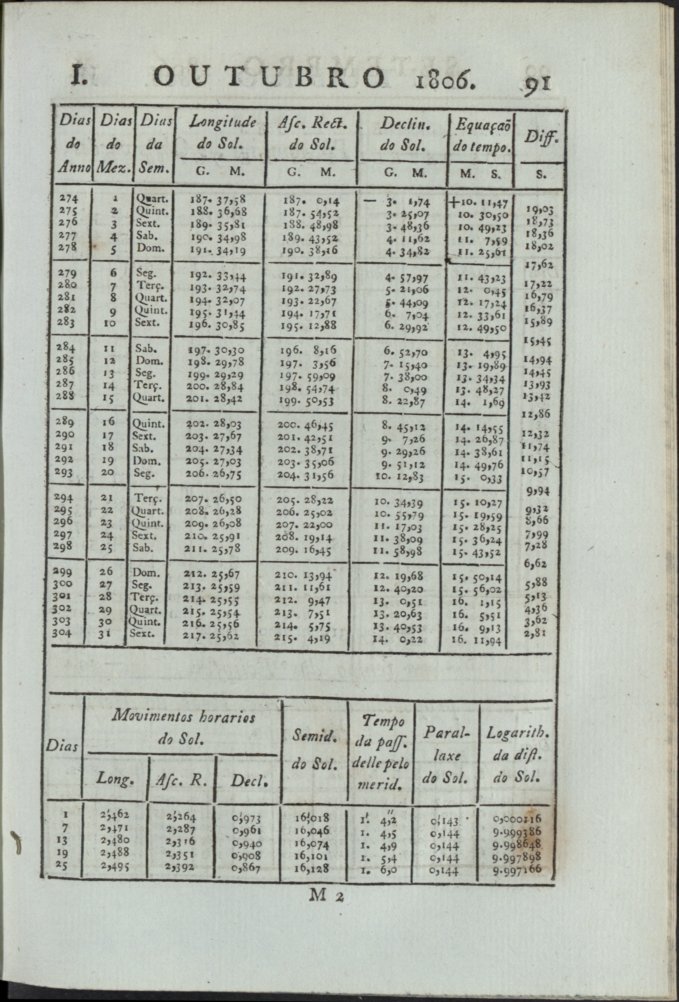 I. OUTUBRO 1806. 91
Dias do Anno Dias do Mez. Dias da Sem. Longitude do Sol. Asc. Rect. do Sol. Declin. do Sol. Equaçaõ do tempo. Diff.
G. M. G. M. G. M. M. S. S.
274 1 Quart. 187. 37,58 187. 0,14 — 3. 1,74 +10. 11,47
19,03
275 2 Quint. 188. 36,68 187. 54,52 3. 25,07 10. 30,50
18,73
276 3 Sext. 189. 35,81 188. 48,98 3. 48,36 10. 49,23
18,36
277 4 Sab. 190. 34,98 189. 43,52 4. 11,62 11. 7,59
18,02
278 5 Dom. 191. 34,19 190. 38,16 4. 34,82 11. 25,61
17,62
279 6 Seg. 192. 33,44 191. 32,89 4. 57,97 11. 43,23
17,22
280 7 Terç. 193. 32,74 192. 27,73 5. 21,06 12. 0,45
16,79
281 8 Quart. 194. 32,07 193. 22,67 5. 44,09 12. 17,24
16,37
282 9 Quint. 195. 31,44 194. 17,71 6. 7,04 12. 33,61
15,89
283 10 Sext. 196. 30,85 195. 12,88 6. 29,92 12. 49,50
15,45
284 11 Sab. 197. 30,30 196. 8,16 6. 52,70 13. 4,95
14,94
285 12 Dom. 198. 29,78 197. 3,56 7. 15,40 13. 19,89
14,45
286 13 Seg. 199. 29,29 197. 59,09 7. 38,00 13. 34,34
13,93
287 14 Terç. 200. 28,84 198. 54,74 8. 0,49 13. 48,27
13,42
288 15 Quart. 201. 28,42 199. 50,53 8. 22,87 14. 1,69
12,86
289 16 Quint. 202. 28,03 200. 46,45 8. 45,12 14. 14,55
12,32
290 17 Sext. 203. 27,67 201. 42,51 9. 7,26 14. 26,87
11,74
291 18 Sab. 204. 27,34 202. 38,71 9. 29,26 14. 38,61
11,15
292 19 Dom. 205. 27,03 203. 35,06 9. 51,12 14. 49,76
10,57
293 20 Seg. 206. 26,75 204. 31,56 10. 12,83 15. 0,33
9,94
294 21 Terç. 207. 26,50 205. 28,22 10. 34,39 15. 10,27
9,32
295 22 Quart. 208. 26,28 206. 25,02 10. 55,79 15. 19,59
8,66
296 23 Quint. 209. 26,08 207. 22,00 11. 17,03 15. 28,25
7,99
297 24 Sext. 210. 25,91 208. 19,14 11. 38,09 15. 36,24
7,28
298 25 Sab. 211. 25,78 209. 16,45 11. 58,98 15. 43,52
6,62
299 26 Dom. 212. 25,67 210. 13,94 12. 19,68 15. 50,14
5,88
300 27 Seg. 213. 25,59 211. 11,61 12. 40,20 15. 56,02
5,13
301 28 Terç. 214. 25,55 212. 9,47 13. 0,51 16. 1,15
4,36
302 29 Quart. 215. 25,54 213. 7,51 13. 20,63 16. 5,51
3,62
303 30 Quint. 216. 25,56 214. 5,75 13. 40,53 16. 9,13
2,81
304 31 Sext. 217. 25,62 215. 4,19 14. 0,22 16. 11,94
Dias Movimentos horarios do Sol. Semid. do Sol. Tempo da pass. delle pelo merid. Parallaxe do Sol. Logarith. da dist. do Sol.
Long. Asc. R. Decl.
1 2',462 2',264 0',973 16',018 1'. 4,2'' 0',143 0,000116
7 2,471 2,287 0,961 16,046 1. 4,5 0,144 9.999386
13 2,480 2,316 0,940 16,074 1. 4,9 0,144 9.998648
19 2,488 2,351 0,908 16,101 1. 5,4 0,144 9.997898
25 2,495 2,392 0,867 16,128 1. 6,0 0,144 9.997166
M 2